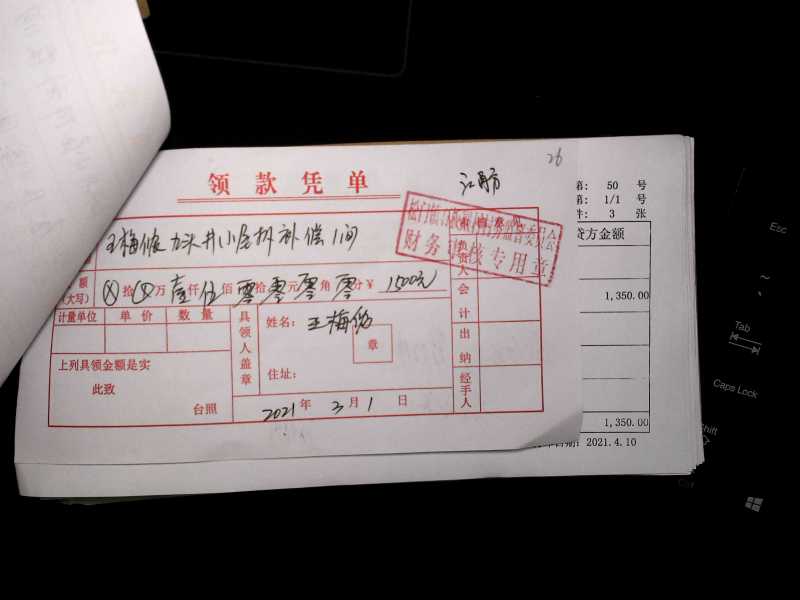 26
领款凭单
王梅俊 力头井小屋拆补偿1间
额
(大写) ⊗拾⊗万壹仟伍佰零拾零元零角零分¥ 1500元
计量单位 单价 数量
具领人盖章
姓名: 王梅俊
章
住址:
上列具领金额是实
此致
台照
2021年3月1日
负责人
会计
出纳
经手人
财务审核专用章
第: 50 号
第: 1/1 号
件: 3 张
贷方金额
1,350.00
1,350.00
日期: 2021.4.10
Esc
~
Tab
Caps Lock
Shift